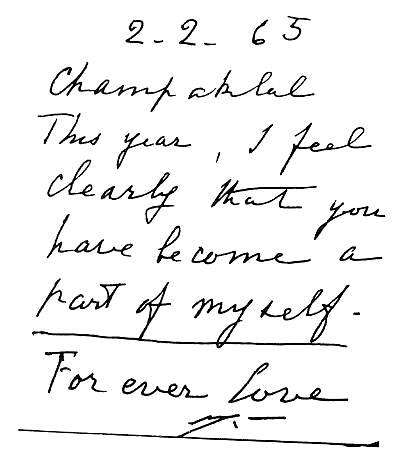 2-2-65
Champaklal
This year, I feel
clearly that you
have become a
part of myself.
For ever love